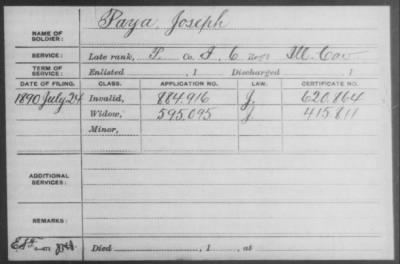 Paya, Joseph
NAME OF
SOLDIER:
SERVICE: Late rank, P. Co. I, 6 Reg't Ill. Cav
TERM OF
SERVICE: Enlisted , 1 Discharged , 1
DATE OF FILING. CLASS. APPLICATION NO. LAW. CERTIFICATE NO.
1890 July 24 Invalid, 884.916 J. 620.864
Widow, 595.095 J. 415.811
Minor,
ADDITIONAL
SERVICES:
REMARKS:
Died , 1 , at